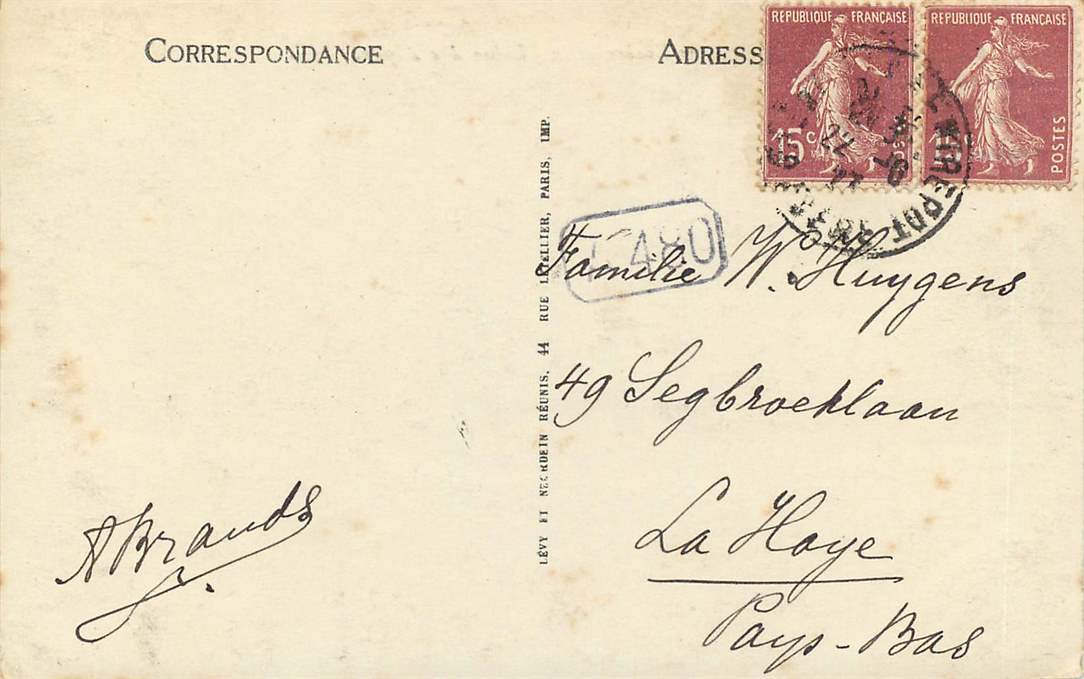 CORRESPONDANCE
ADRESS
REPUBLIQUE FRANÇAISE
15c
POSTES
REPUBLIQUE FRANÇAISE
POSTES
MIREPOT
480
LÉVY ET NEURDEIN RÉUNIS, 44 RUE LETELLIER, PARIS, IMP.
Familie W. Huygens
49 Segbroeklaan
La Haye
Pays-Bas
A Brands